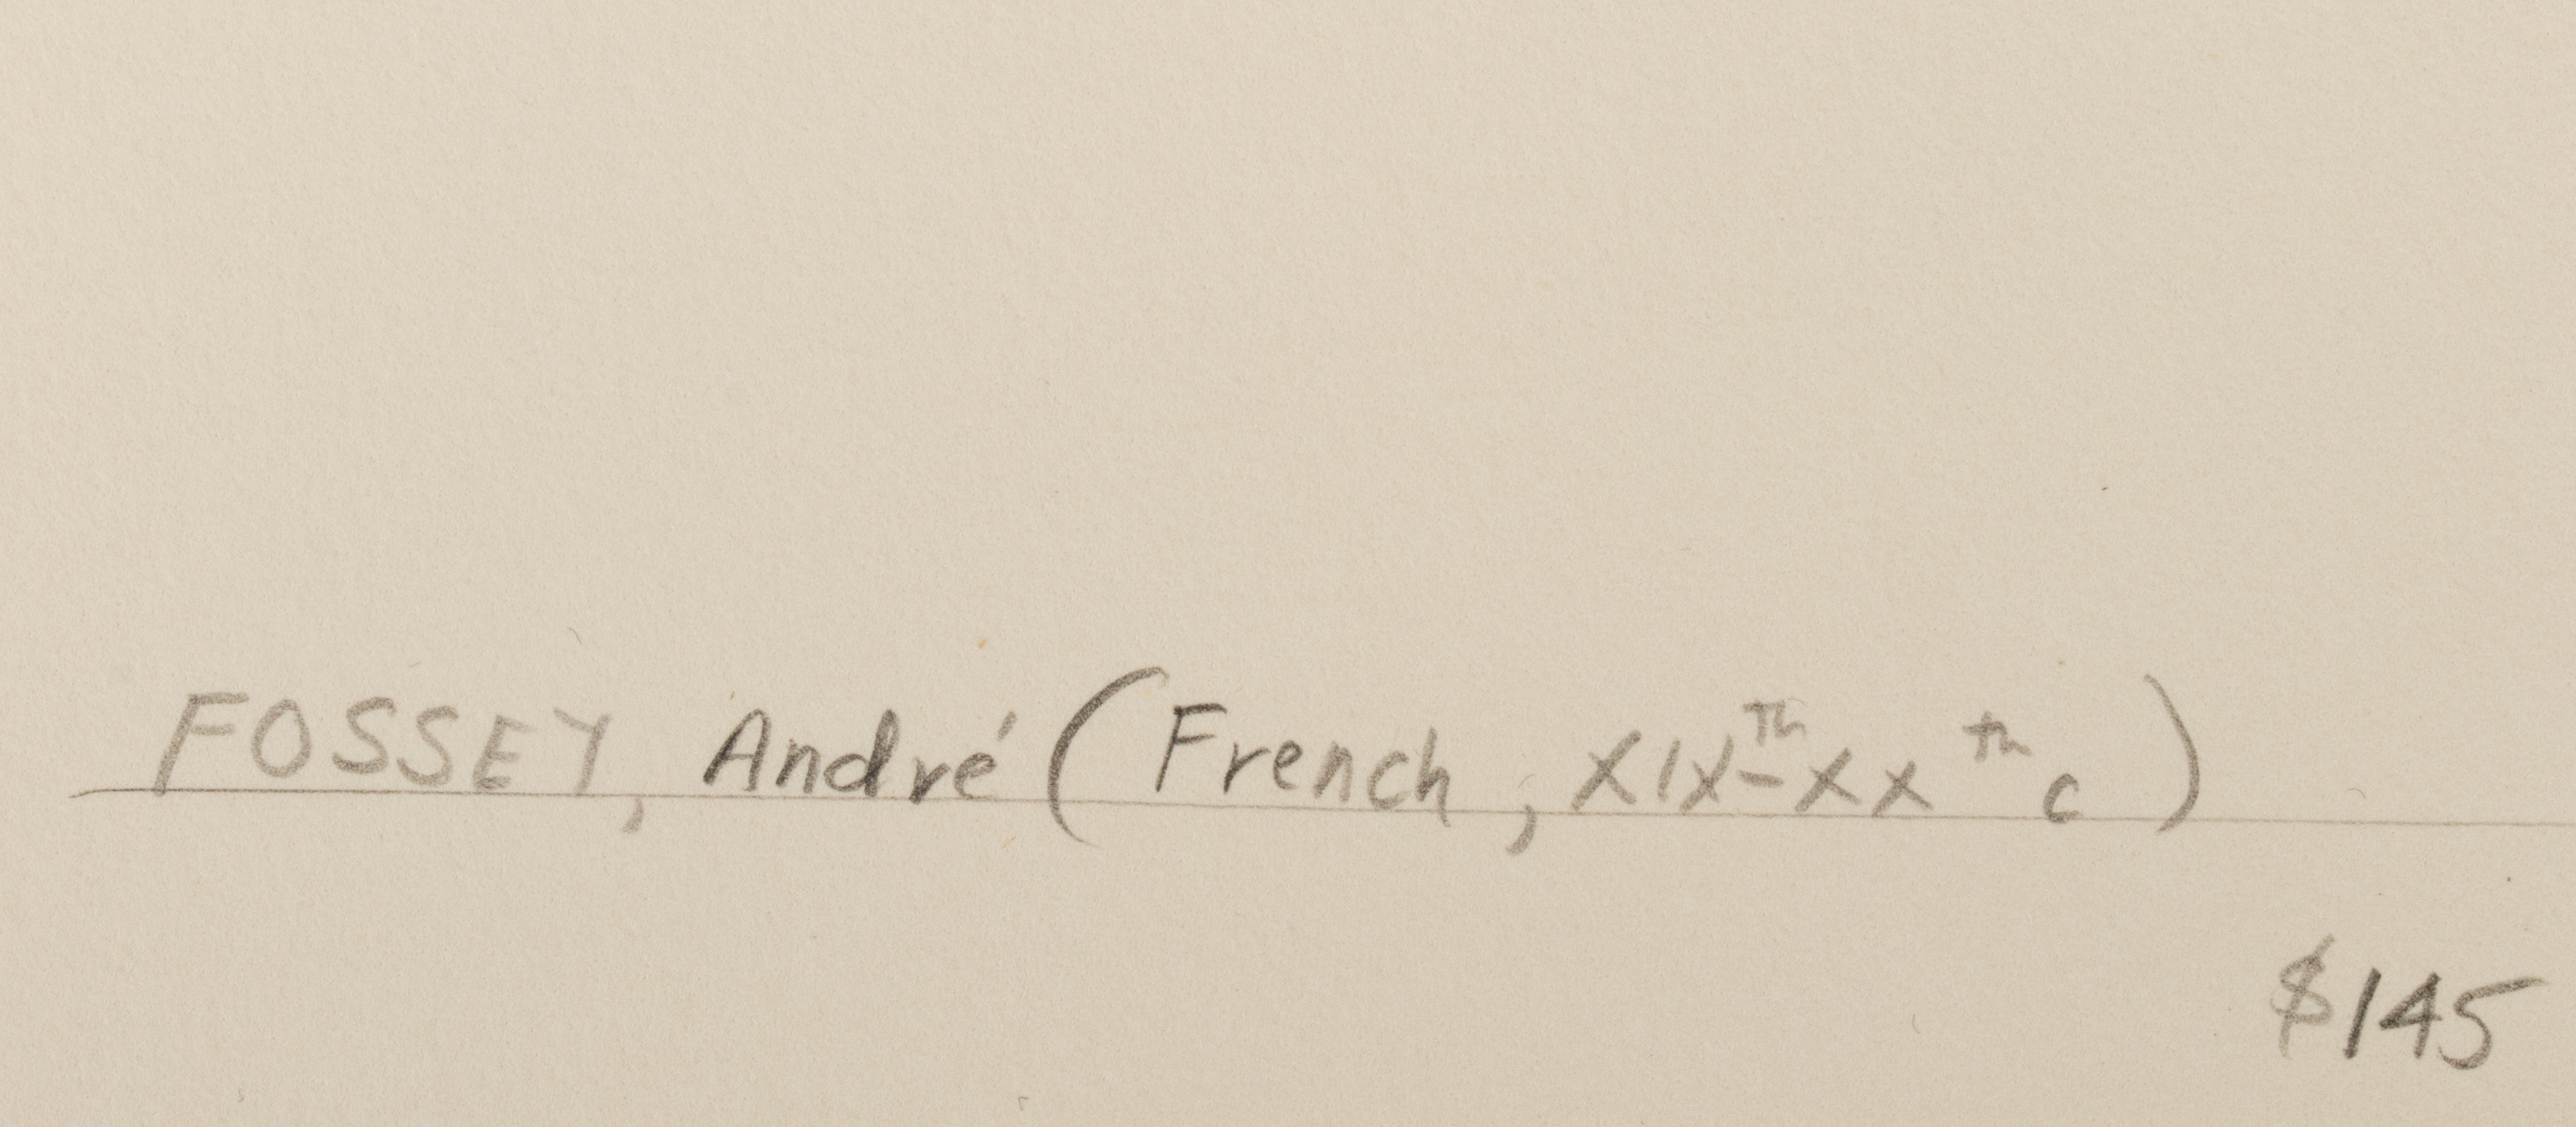 FOSSEY, André (French, XIXTh-XXth c)
$145